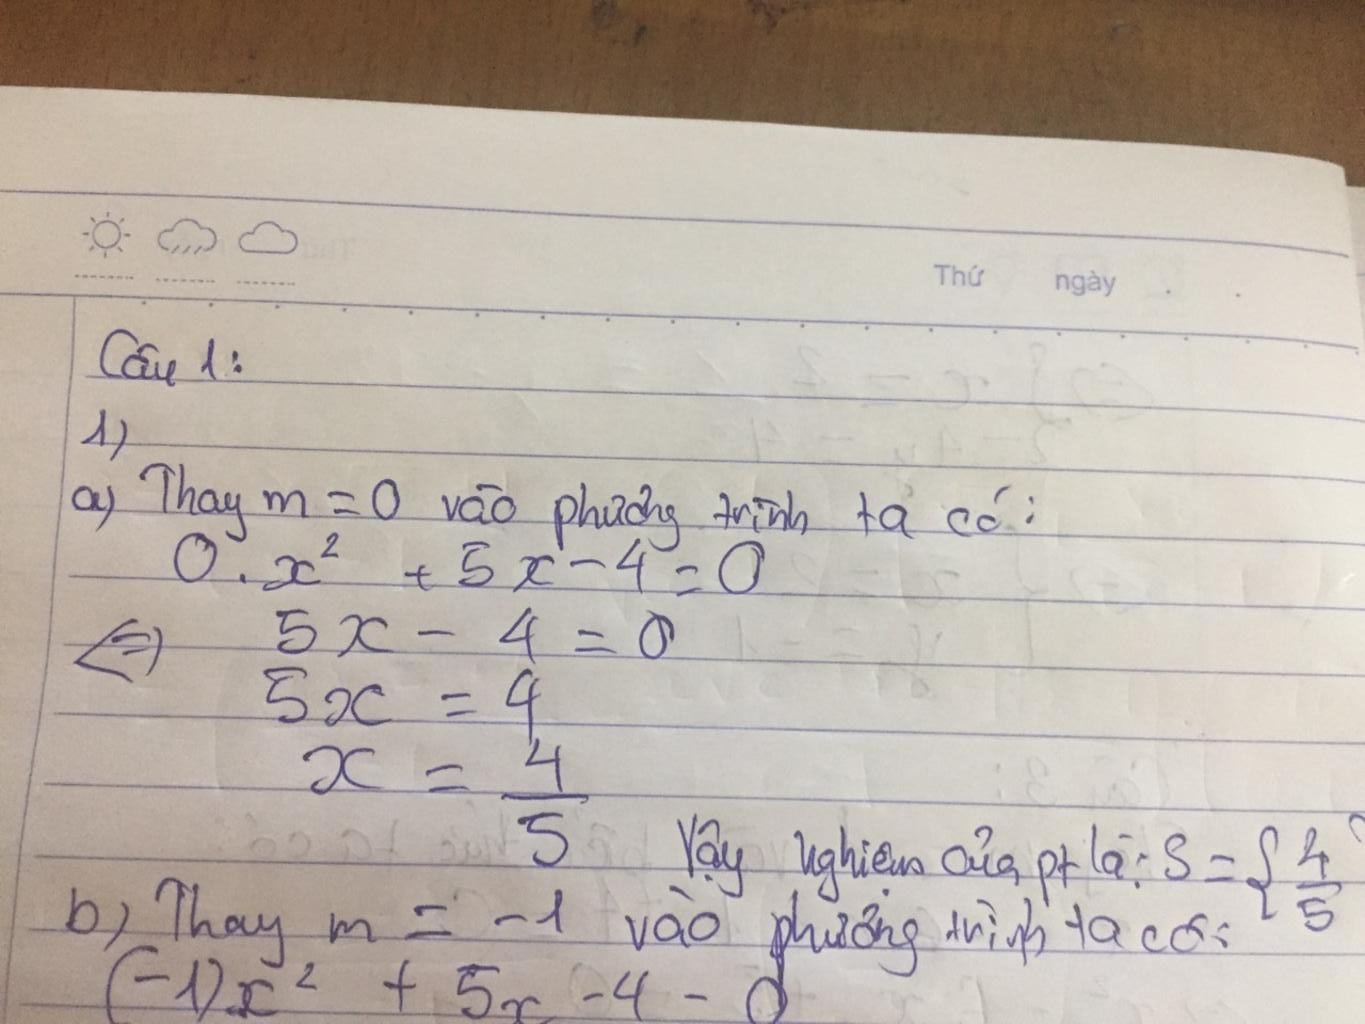 Thứ ngày
Câu 1:
1)
a) Thay m = 0 vào phương trình ta có:
0 . x² + 5x - 4 = 0
<=> 5x - 4 = 0
5x = 4
x = 4/5
Vậy nghiệm của pt là: S = { 4/5
b) Thay m = -1 vào phương trình ta có:
(-1)x² + 5x - 4 - 0